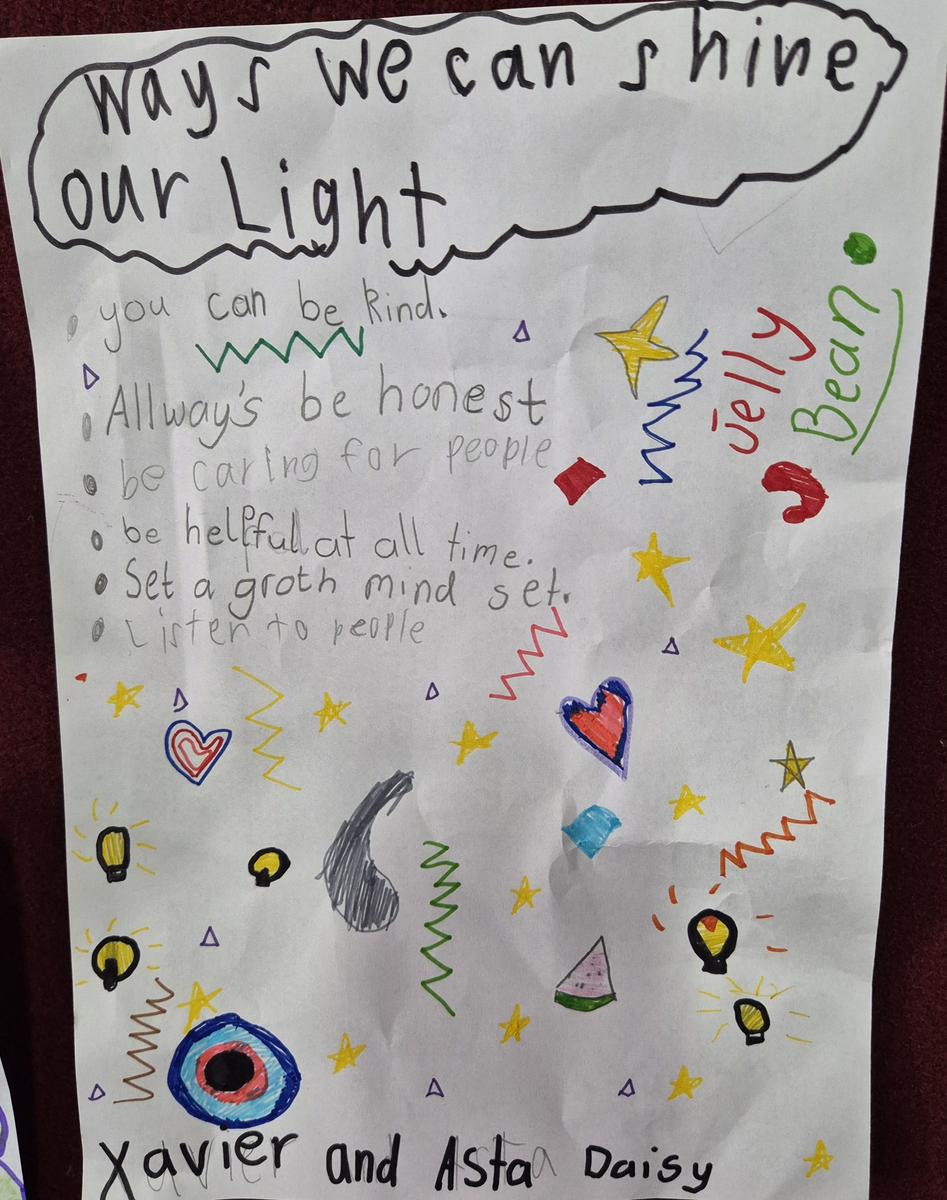 Ways we can shine
our Light
you can be kind.
Allway's be honest
be caring for people
be helpful at all time.
Set a groth mind set.
Listen to people
Jelly
Bean
Xavier and Asta Daisy